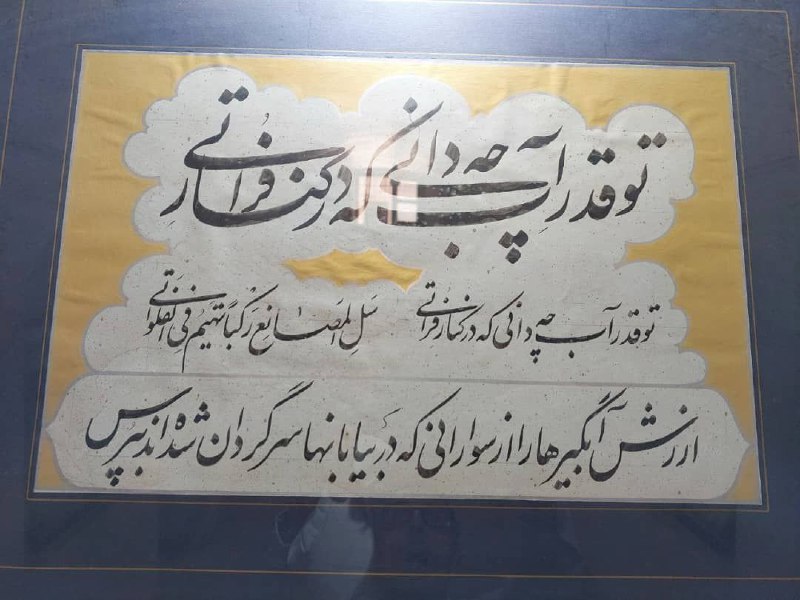 تو قدر آب چه دانی که در کنار فراتی
تو قدر آب چه دانی که در کنار فراتی سَلِ المَصانِعَ رَکْباً تَهیمُ فِی الفَلَواتی
ارزش آبگیرها را از سوارانی که در بیابانها سرگردان شده‌اند بپرس